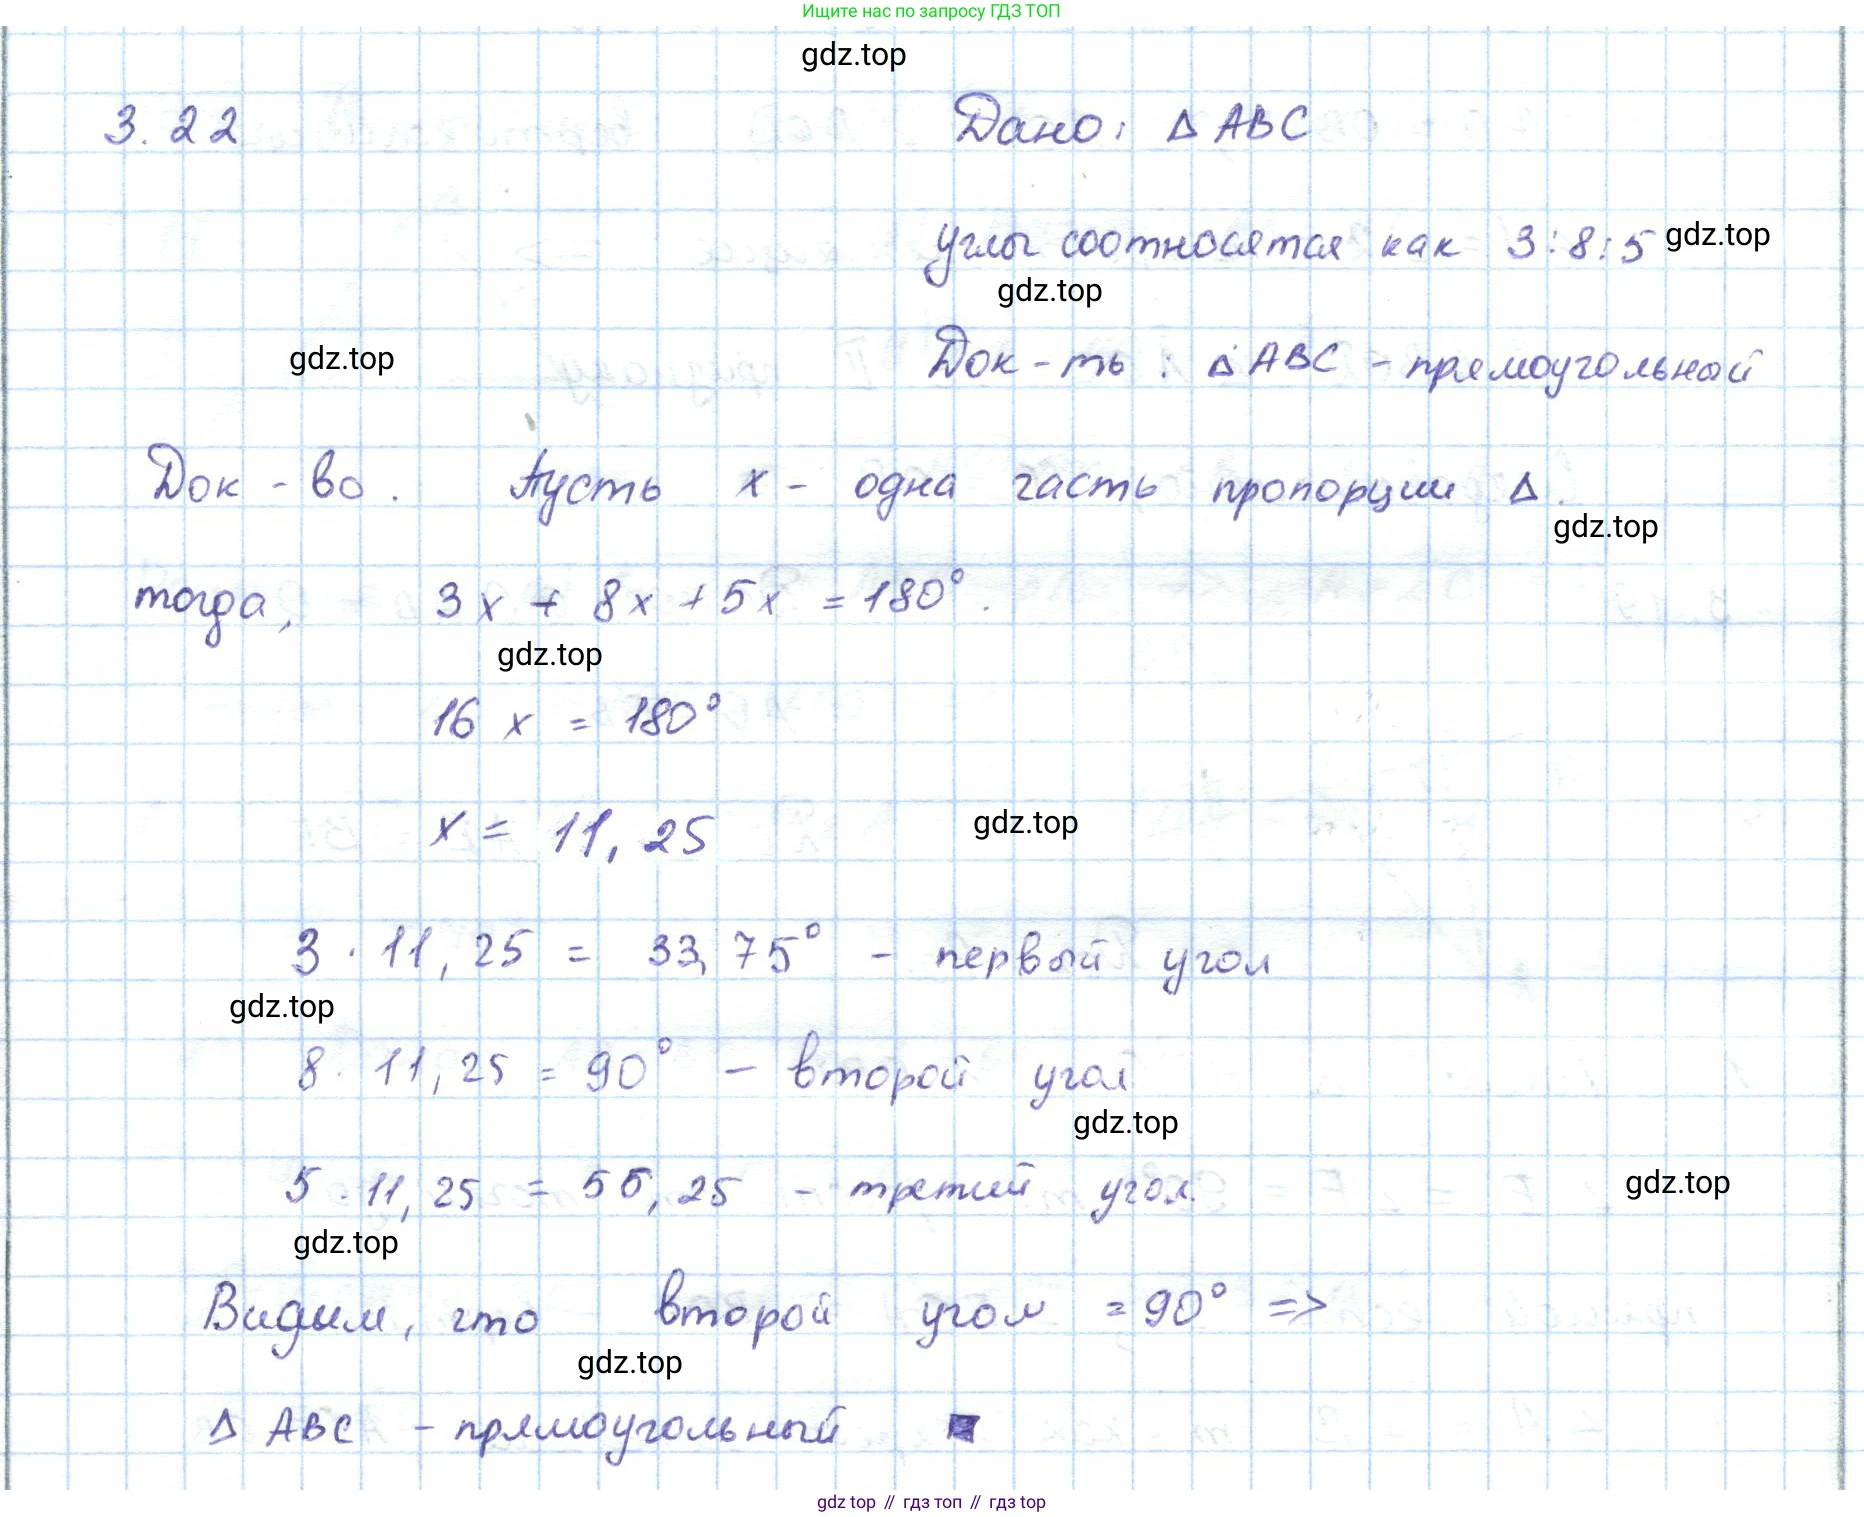 Ищите нас по запросу ГДЗ ТОП
gdz.top
3.22 Дано: Δ ABC
углы соотносятся как 3:8:5 gdz.top
gdz.top
gdz.top Док-ть: Δ ABC - прямоугольный
Док-во. Пусть x - одна часть пропорции Δ.
gdz.top
тогда, 3x + 8x + 5x = 180°.
gdz.top
16x = 180°
x = 11,25 gdz.top
3 · 11,25 = 33,75° - первый угол
gdz.top
8 · 11,25 = 90° - второй угол
gdz.top
5 · 11,25 = 56,25 - третий угол. gdz.top
gdz.top
Видим, что второй угол = 90° =>
gdz.top
Δ ABC - прямоугольный
gdz top // гдз топ // гдз top